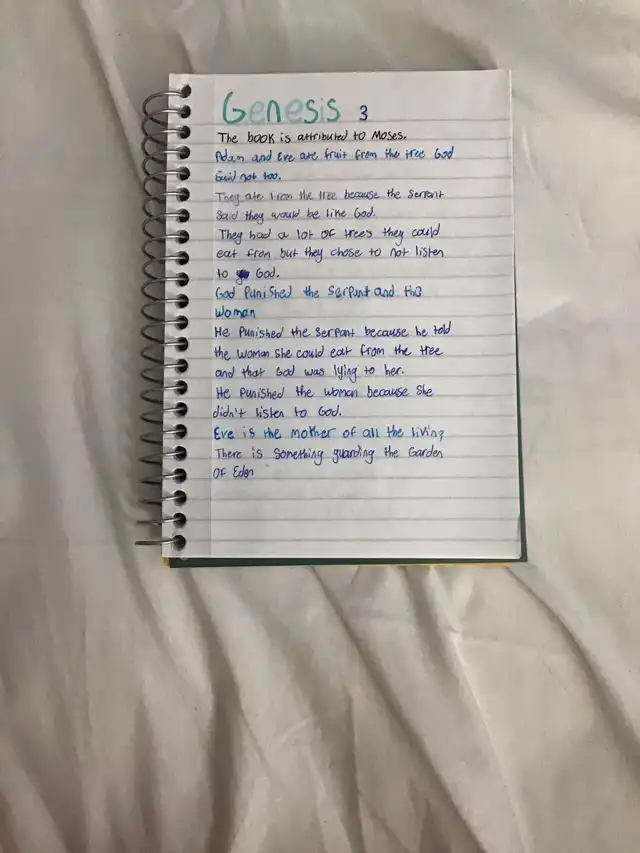 Genesis 3
The book is attributed to Moses.
Adam and Eve ate fruit from the tree God
Said not too.
They ate from the tree because the Serpant
Said they would be like God.
They had a lot of trees they could
eat from but they chose to not listen
to God.
God Punished the Serpunt and the
Woman
He Punished the Serpant because he told
the woman she could eat from the tree
and that God was lying to her.
He Punished the woman because she
didn't listen to God.
Eve is the mother of all the living
There is Something guarding the Garden
Of Eden